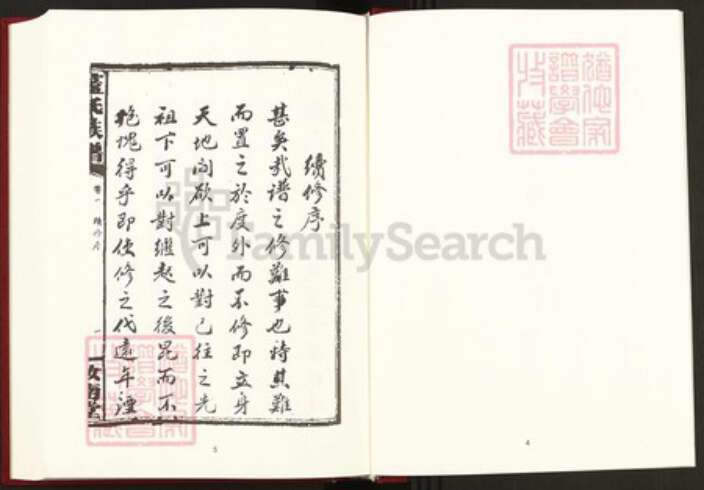 續修序
甚矣哉譜之修難事也待其難
而置之於度外而不修即立身
天地间欲上可以對已往之先
祖下可以對繼起之後昆而不
抱愧得乎即使修之代遠年湮
藍氏族譜
卷一 續修序
一
FamilySearch
5
4